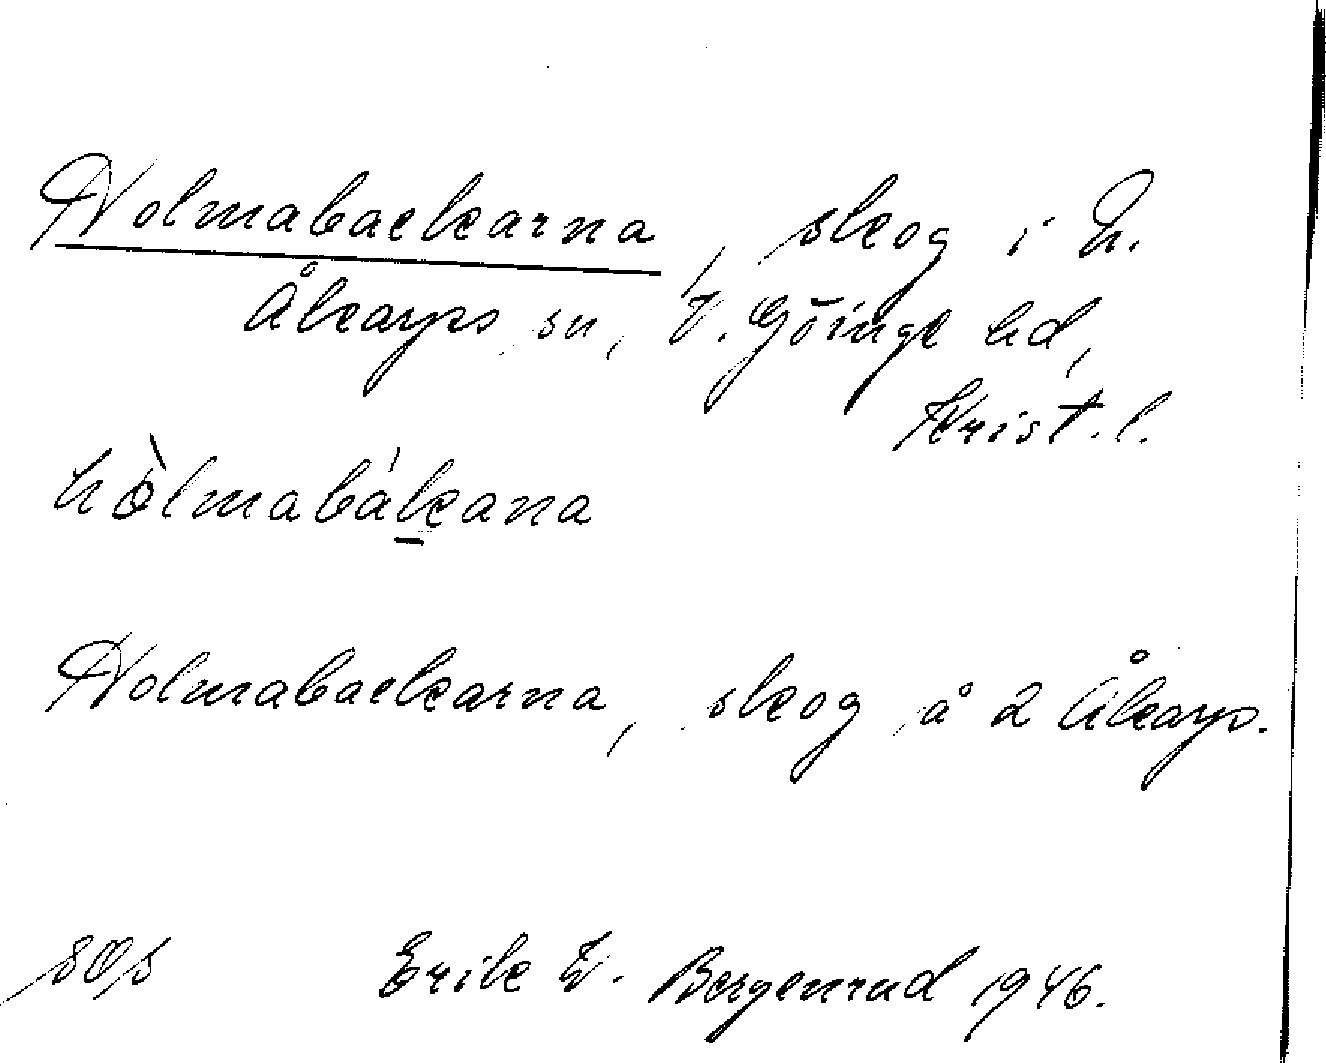 Holmabackarna, skog i N.
Åkarps sn, V. Göinge hd,
Krist. l.
hòlmabákana
Holmabackarna, skog å 2 Åkarp.
SOS Erik W. Bergenrud 1946.